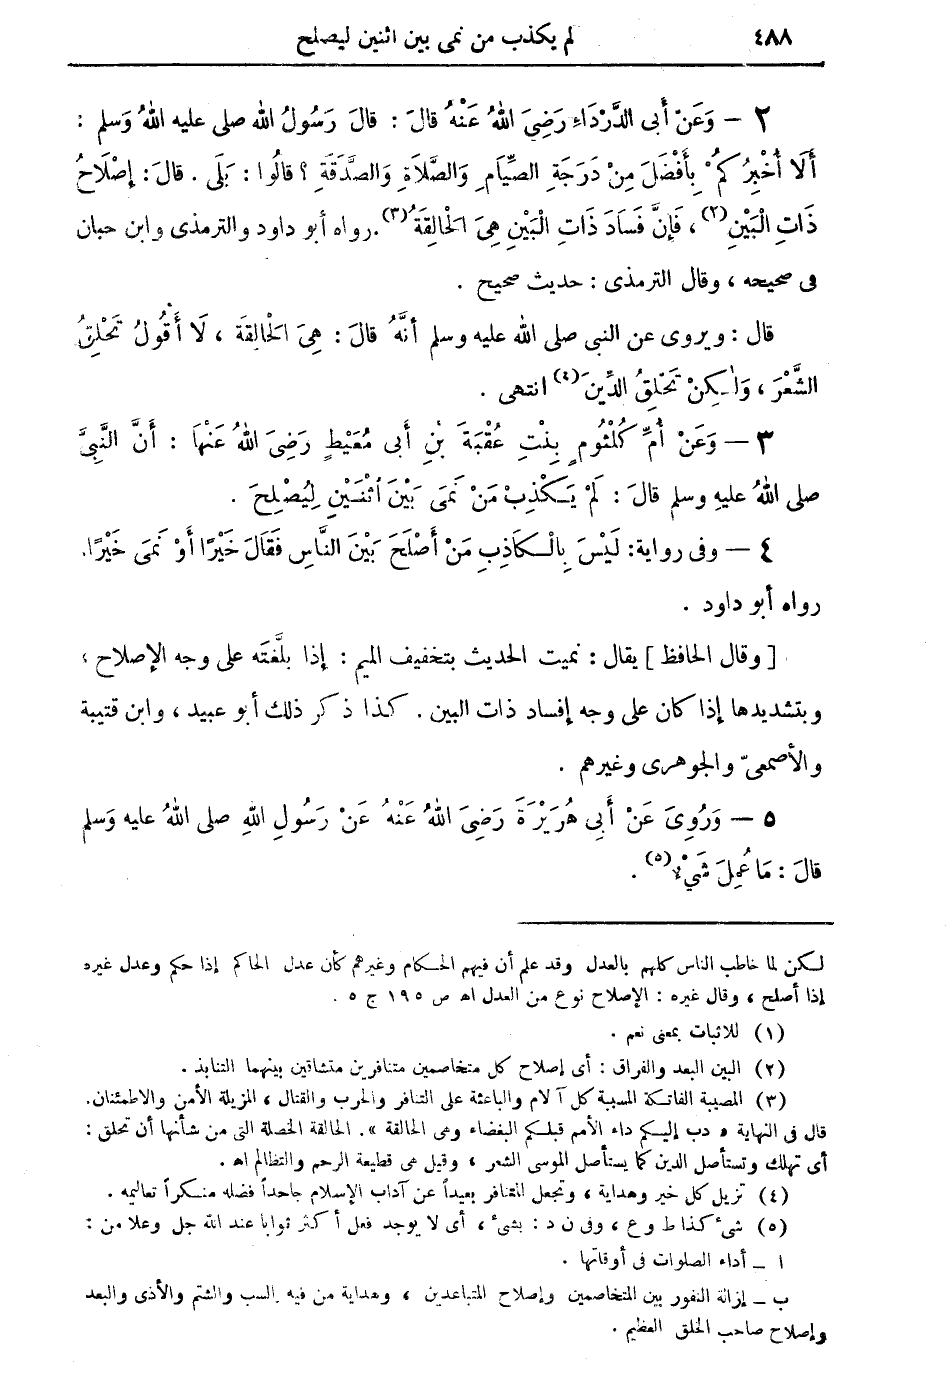 ٤٨٨ لم يكذب من نمى بين اثنين ليصلح
٢ — وَعَنْ أَبى الدَّرْدَاءِ رَضِىَ اللهُ عَنْهُ قالَ : قالَ رَسُولُ الله صلى عليه اللهُ وَسلم :
أَلاَ أُخْبِرُكُمْ بِأَفْضَلَ مِنْ دَرَجَةِ الصِّيَامِ وَالصَّلاَةِ وَالصَّدَقَةِ ؟ قالُوا : بَلَى . قالَ : إِصْلاَحُ
ذَاتِ الْبَيْنِ(٢) ، فَإِنَّ فَسَادَ ذَاتِ الْبَيْنِ هِىَ الْحَالِقَةُ(٣). رواه أبو داود والترمذى وابن حبان
فى صحيحه ، وقال الترمذى : حديث صحيح .
قال : ويروى عن النبى صلى الله عليه وسلم أنَّهُ قالَ : هِىَ الْحَالِقَةَ ، لاَ أَقُولُ تَحْلِقُ
الشَّعْرَ ، وَلٰكِنْ تَحْلِقُ الدِّينَ(٤) انتهى .
٣ — وَعَنْ أُمِّ كُلْثُومٍ بِنْتِ عُقْبَةَ بْنِ أبى مُعَيْطٍ رَضِىَ اللهُ عَنْهَا : أَنَّ النَّبِىَّ
صلى اللهُ عليهِ وسلم قالَ : لَمْ يَكْذِبْ مَنْ نَمَى بَيْنَ اُثْنَيْنِ لِيُصْلِحَ .
٤ — وفى رواية: لَيْسَ بِالْكَاذِبِ مَنْ أَصْلَحَ بَيْنَ النَّاسِ فَقَالَ خَيْرًا أَوْ نَمَى خَيْرًا.
رواه أبو داود .
[ وقال الحافظ ] يقال : نميت الحديث بتخفيف الميم : إذا بلَّغتَه على وجه الإصلاح ،
وبتشديدها إذا كان على وجه إفساد ذات البين . كذا ذكر ذلك أبو عبيد ، وابن قتيبة
والأصمعىّ والجوهرى وغيرهم .
٥ — وَرُوِىَ عَنْ أَبِى هُرَيْرَةَ رَضِىَ اللهُ عَنْهُ عَنْ رَسُولِ اللهِ صلى اللهُ عليه وَسلم
قالَ : مَا عُمِلَ شَىْءٌ(٥) .
لكن لما خاطب الناس كلهم بالعدل وقد علم أن فيهم الحكام وغيرهم كأن عدل الحاكم إذا حكم وعدل غيره
إذا أصلح ، وقال غيره : الإصلاح نوع من العدل اه ص ١٩٥ ج ٥ .
(١) للاثبات بمعنى نعم .
(٢) البين البعد والفراق : أى إصلاح كل متخاصمين متنافرين متشاقين بينهما التنابذ .
(٣) المصيبة الفاتكة المسببة كل آلام والباعثة على التنافر والحرب والقتال ، المزيلة الأمن والاطمئنان.
قال فى النهاية « دب إليكم داء الأمم قبلكم البغضاء وهى الحالقة ». الحالقة الخصلة التى من شأنها أن تحلق :
أى تهلك وتستأصل الدين كما يستأصل الموسى الشعر ، وقيل هى قطيعة الرحم والتظالم اه .
(٤) تزيل كل خير وهداية ، وتجعل المتنافر بعيداً عن آداب الإسلام جاحداً فضله منكراً تعاليمه .
(٥) شىء كذا ط وع ، وفى ن د : بشىء ، أى لا يوجد فعل أكثر ثوابا عند الله جل وعلا من :
ا ـ أداء الصلوات فى أوقاتها .
ب ـ إزالة النفور بين المتخاصمين وإصلاح المتباعدين ، وهداية من فيه السب والشتم والأذى والبعد
وإصلاح صاحب الخلق العظيم .